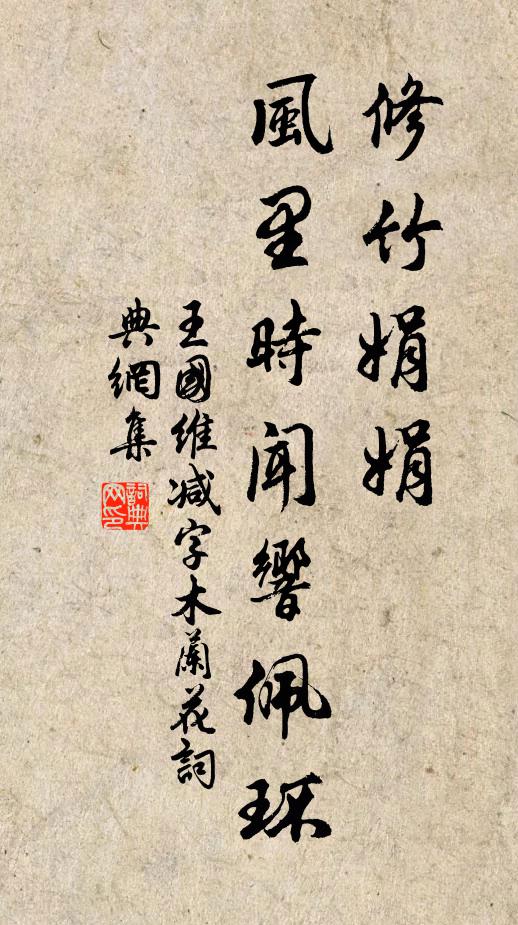 修竹娟娟
風里時聞響佩环
王國維减字木蘭花詞
典網集
詞典
网印